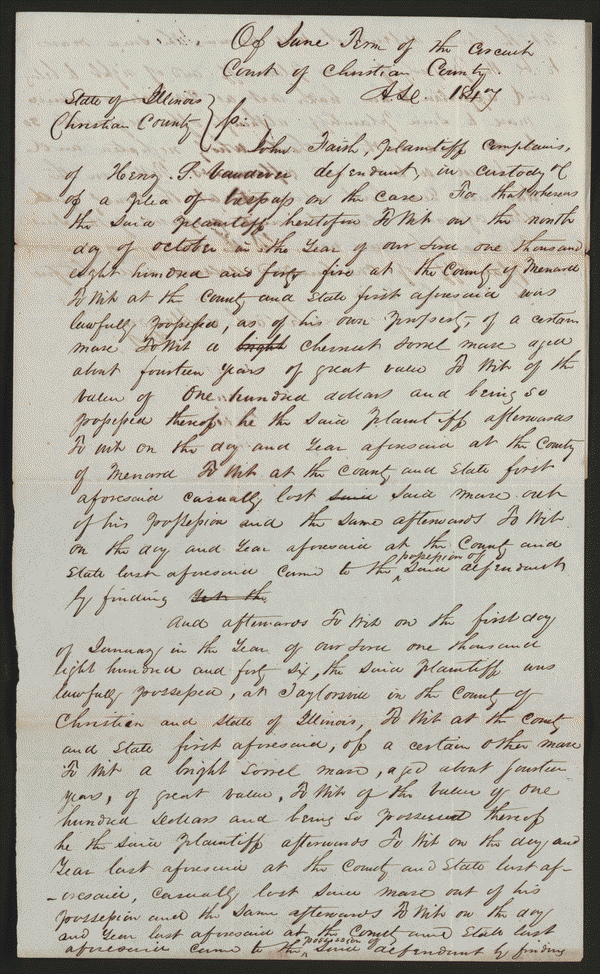 Of June Term of the Circuit
Court of Christian County
AD 1847
State of Illinois }
Christian County } ss.
John Faith, plaintiff complains,
of Henry P. Vandeveer defendant, in custody &c
of a plea of trespass on the case For that whereas
the said plaintiff heretofore To Wit on the ninth
day of October in the Year of our Lord one thousand
eight hundred and forty five at the County of Menard
To Wit at the County and State first aforesaid was
lawfully possessed, as of his own property, of a certain
mare To Wit a bright chesnut sorrel mare aged
about fourteen years of great value To Wit of the
value of One hundred dollars and being so
possessed thereof he the said Plaintiff afterwards
To wit on the day and Year aforesaid at the County
of Menard To Wit at the County and State first
aforesaid casually lost said said mare out
of his possession and the same afterwards To Wit
on the day and Year aforesaid at the County and
State last aforesaid came to the possession of said defendant
by finding Yet the
And afterwards To Wit on the first day
of January in the Year of our Lord one thousand
eight hundred and forty six, the said Plaintiff was
lawfully possessed, at Taylorsville in the County of
Christian and State of Illinois, To Wit at the County
and State first aforesaid, of a certain other mare
To Wit a bright sorrel mare, aged about fourteen
years, of great value, To Wit of the value of one
hundred Dollars and being so possessed thereof
he the said Plaintiff afterwards To Wit on the day and
Year last aforesaid at the County and State last af-
-oresaid, casually lost said mare out of his
possession and the same afterwards To Wit on the day
and Year last aforesaid at the County and State last
aforesaid came to the possession of said defendant by finding